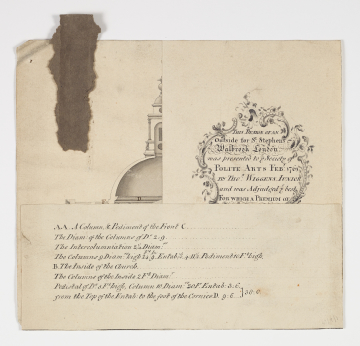 This Design of an
Outside for St. Stephen's
Walbrook London
was presented to ye Society of
Polite Arts Feb.
by Thos. Wiggens Junior
and was Adjudg'd ye best,
For which a Premium of
A.A. A Column & Pediment of the Front C
The Diam: of the Columns of Do. 2:9
The Intercolumniation 2¼ Diamrs
The Columns 9 Diamrs high Entab:
B. The Inside of the Church.
The Columns of the Inside 2 Ft. Diamr
Pedestal of Do. 8 Ft. high, Column 10 Diamrs 20 F. Entab:
from the Top of the Entab: to the foot of the Cornice D. 9:6